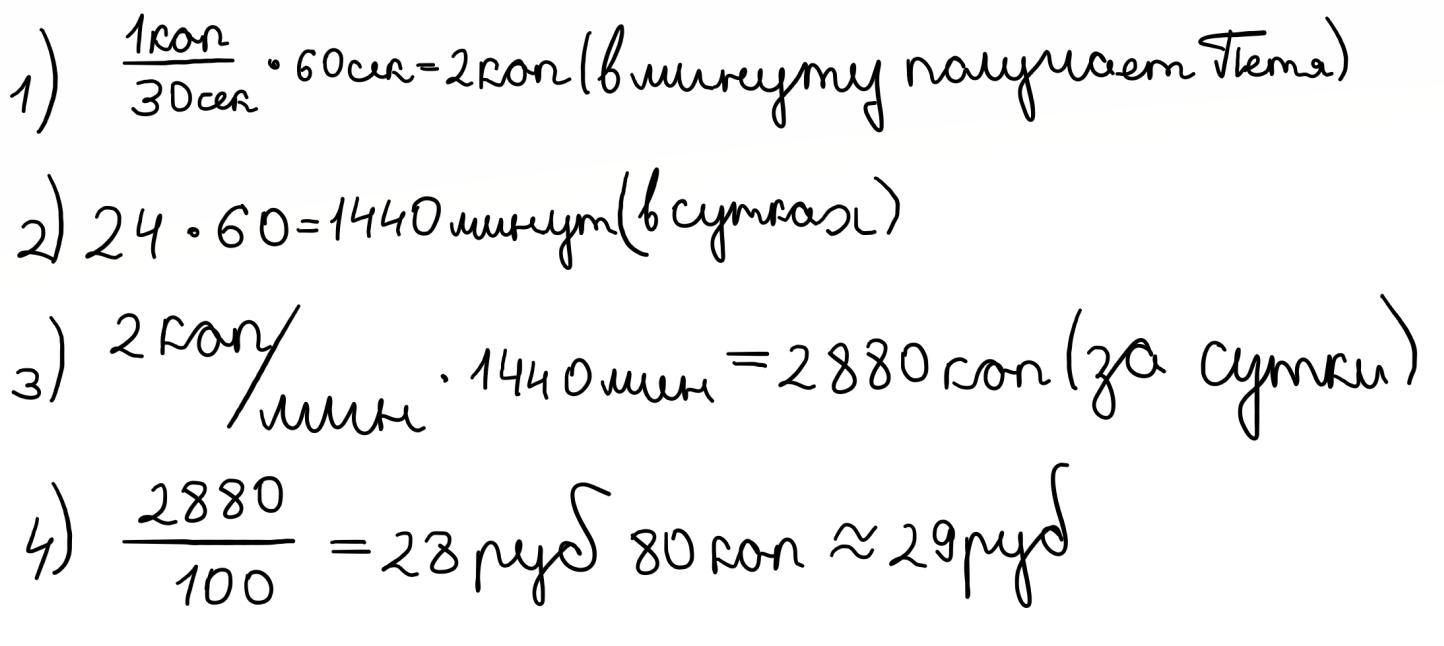 1) 1коп/30сек · 60сек = 2коп (в минуту получает Петя)
2) 24 · 60 = 1440 минут (в сутках)
3) 2коп/мин · 1440мин = 2880коп (за сутки)
4) 2880/100 = 28руб 80коп ≈ 29руб